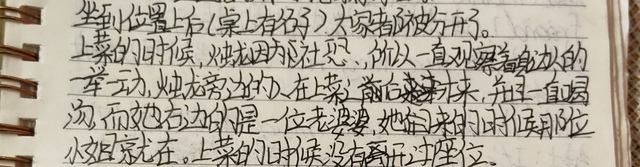 坐到位置上后(桌上有名字)大家都被分开了。
上菜的时候,烛龙因为社恐,所以一直观察着身边人的
一举一动,烛龙旁边的人在上菜前后来,并且一直喝
汤,而她右边的是一位老婆婆,她回来的时候那位
婆就在。上菜的时候没有离开过座位。